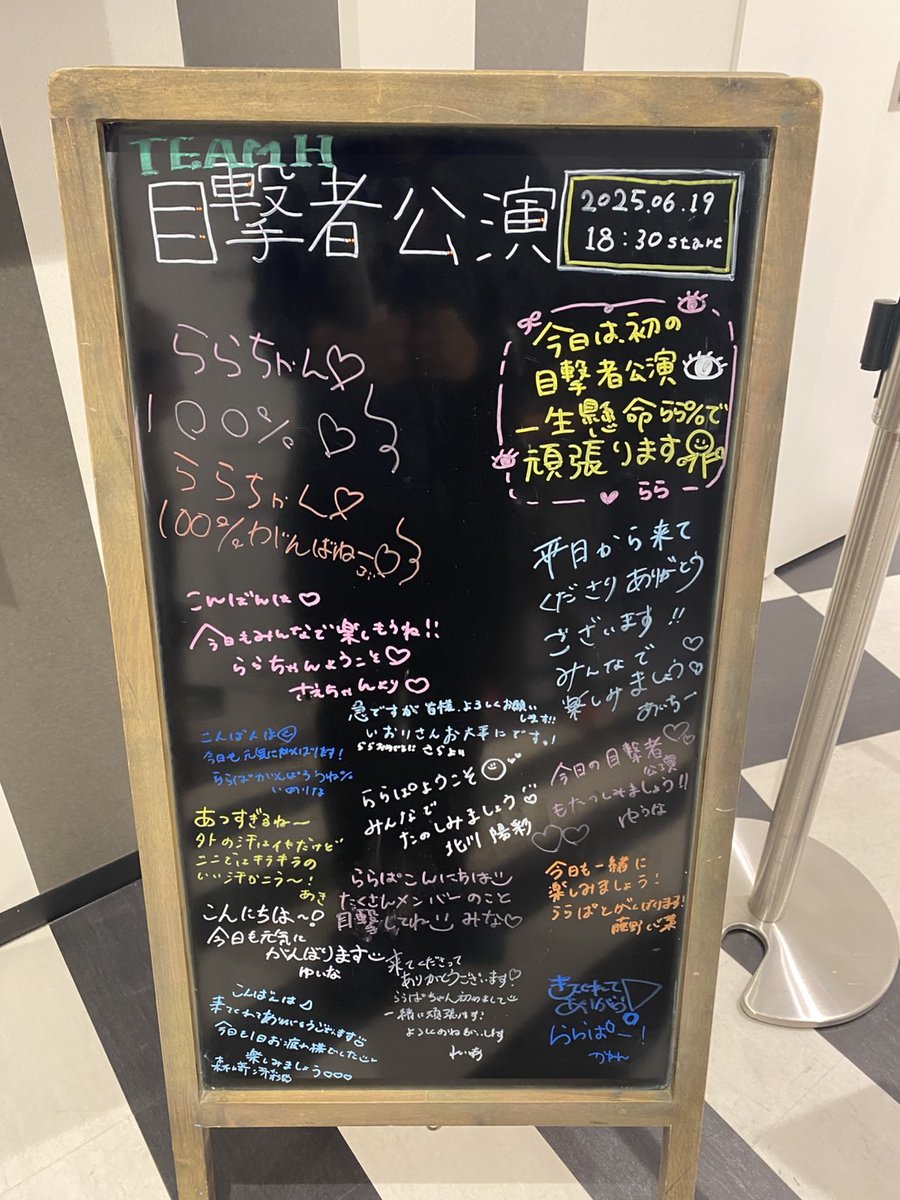 TEAM H
目撃者公演
2025.06.19
18:30 start
ららちゃん♡
100% ♡
ららちゃん♡
100%がんばねー
今日は初の
目撃者公演
一生懸命らら%で
頑張ります
らら
平日から来て
くださり ありがとう
ございます!!
みんなで
楽しみましょう
あいちー
こんばんは♡
今日もみんなで楽しもうね!!
ららちゃんようこそ♡
さえちゃんより♡
急ですが 皆様 よろしくお願い
します!!
いおりさんお大事にです。!
さらより
こんばんは
今日も元気にがんばります!
ららぱがんばろうね%
いおりな
ららぱようこそ
みんなで
たのしみましょう
北川 陽彩
今日の目撃者
公演
もたのしみましょう!!
ゆうな
あつすぎるねー
外の汗はイヤだけど
ここではキラキラの
いい汗かこう〜!
あき
ららぱこんにちは
たくさんメンバーのこと
目撃してね みな♡
今日も一緒に
楽しみましょう!
ららぱとがんばります!
こんにちは〜
今日も元気に
がんばります
ゆいな
来てくださって
ありがとうございます♡
ららぱちゃん初めまして
一緒に頑張ります!
よろしくおねがいします
こんばんは♪
来てくれてありがとうございます
今日も1日お疲れ様でした
楽しみましょう♡♡♡
きてくれて
ありがとう!
ららぱー!
かれん